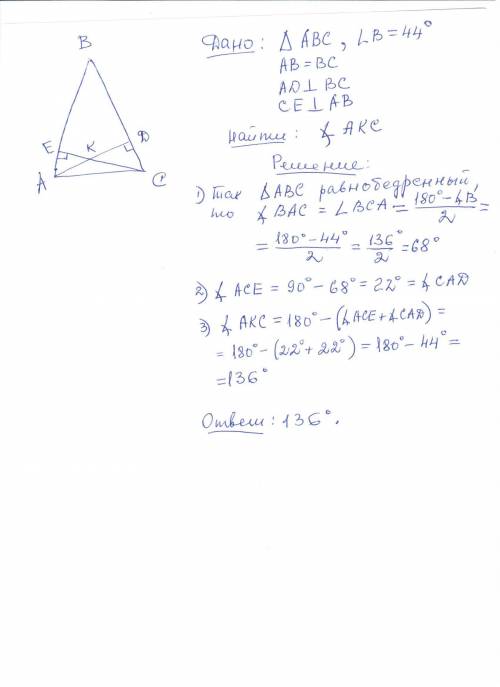 B
E
K
D
A
C
Дано: △ ABC, ∠B = 44°
AB = BC
AD ⊥ BC
CE ⊥ AB
Найти: ∡ AKC
Решение:
1) Так △ABC равнобедренный,
то ∡ BAC = ∠BCA = (180° - ∡B)/2 =
= (180° - 44°)/2 = 136°/2 = 68°
2) ∡ ACE = 90° - 68° = 22° = ∡ CAD
3) ∡ AKC = 180° - (∡ACE + ∡CAD) =
= 180° - (22° + 22°) = 180° - 44° =
= 136°
Ответ: 136°.